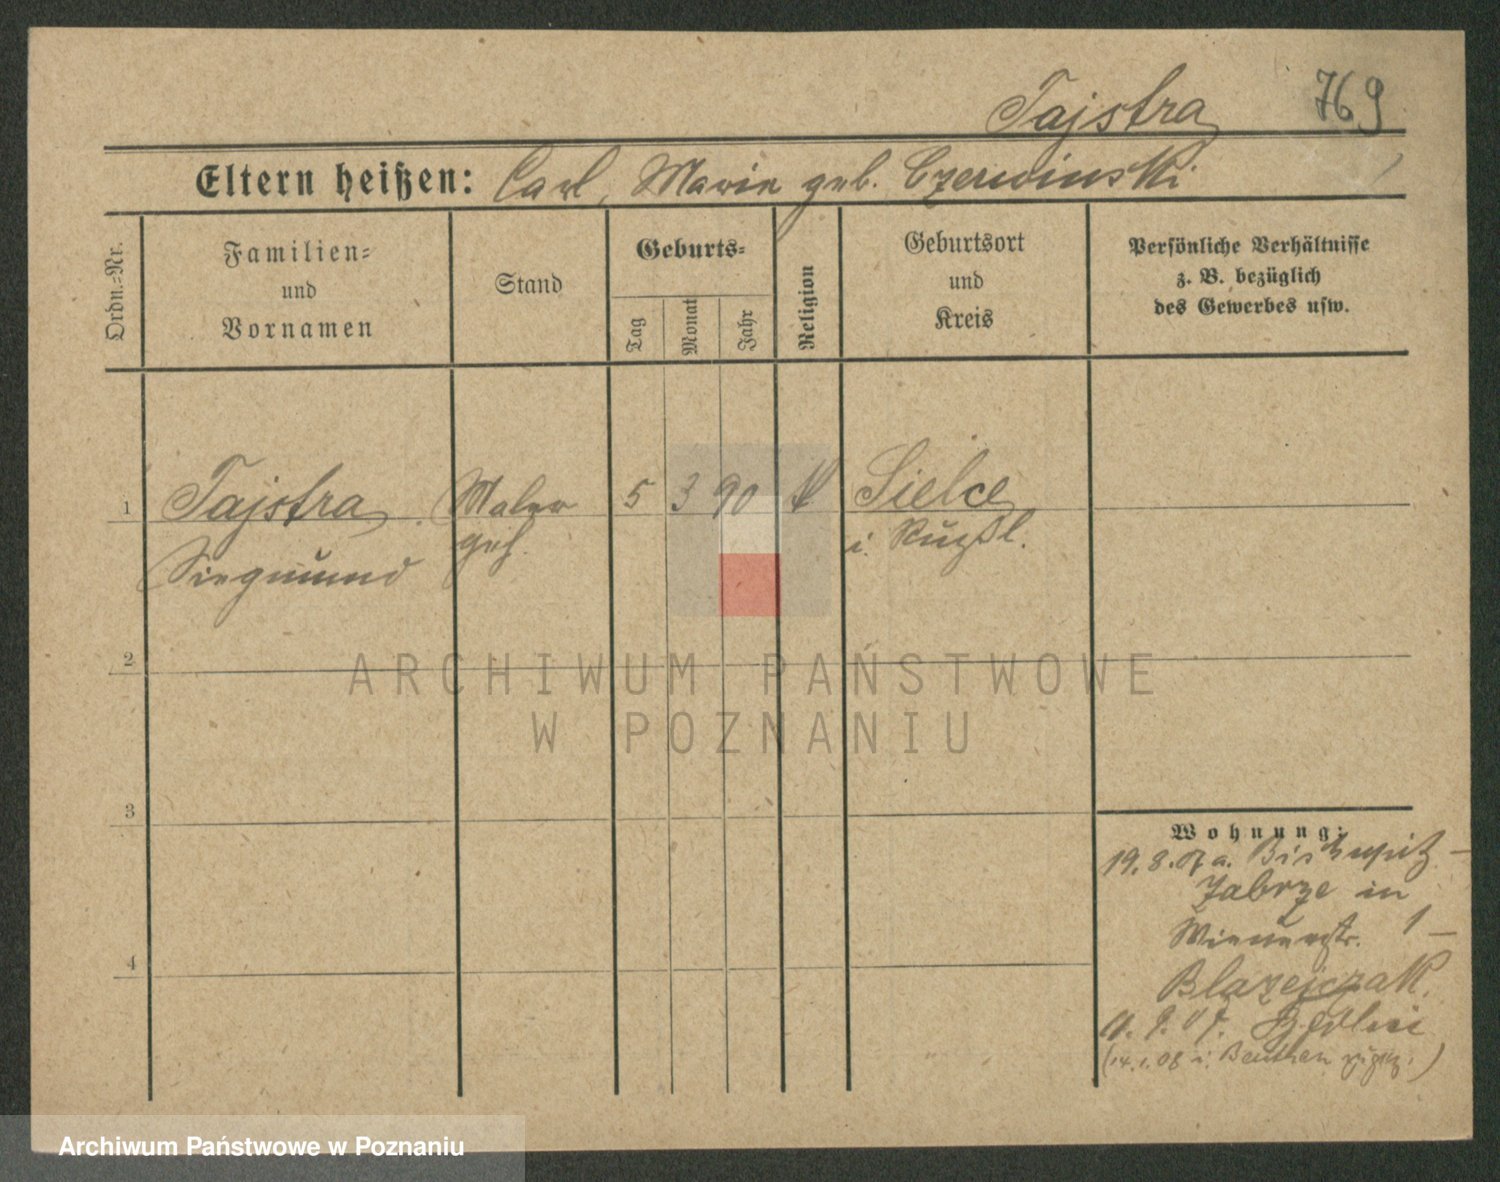 Tajstra 769
Eltern heißen: Carl, Marie geb. Czerwinski
Ordn.-Nr.
Familien-
und
Vornamen
Stand
Geburts-
Tag
Monat
Jahr
Religion
Geburtsort
und
Kreis
Persönliche Verhältnisse
z. B. bezüglich
des Gewerbes usw.
1 Tajstra Maler 5 3 90 Sielce
Siegmund geh. i. Rußl.
2
ARCHIWUM PAŃSTWOWE
W POZNANIU
3
Wohnung:
19.8.07 a.
Zabrze in
Wienerstr. 1
4
Blazejczak.
Berlin
(14.1.08 i. Beuthen
Archiwum Państwowe w Poznaniu